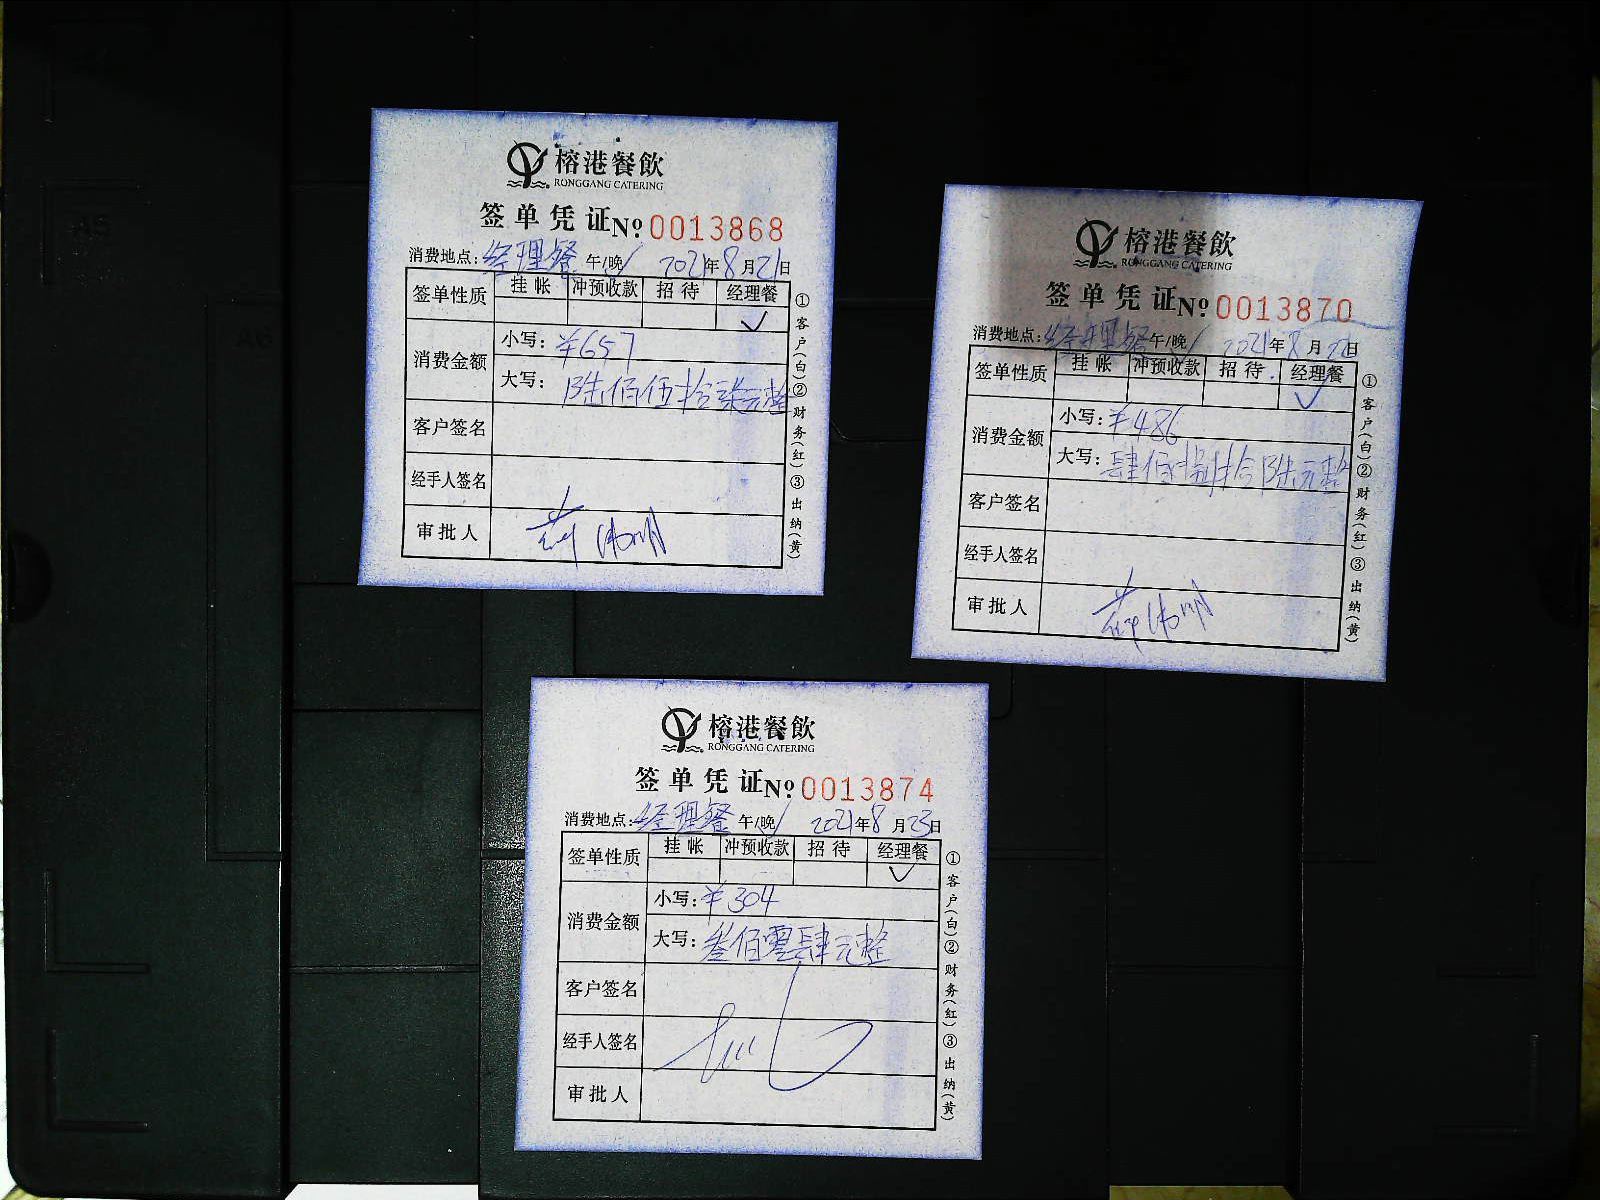 榕港餐飲
RONGGANG CATERING
签单凭证 № 0013868
消费地点: 经理餐 午/晚✓ 2021年8月21日
签单性质 挂帐 冲预收款 招待 经理餐
✓
消费金额 小写: ¥657
大写: 陆佰伍拾柒元整
客户签名
经手人签名
审批人
①客户(白)②财务(红)③出纳(黄)
榕港餐飲
RONGGANG CATERING
签单凭证 № 0013870
消费地点: 经理餐 午/晚✓ 2021年8月22日
签单性质 挂帐 冲预收款 招待 经理餐
✓
消费金额 小写: ¥486
大写: 肆佰捌拾陆元整
客户签名
经手人签名
审批人
①客户(白)②财务(红)③出纳(黄)
榕港餐飲
RONGGANG CATERING
签单凭证 № 0013874
消费地点: 经理餐 午/晚✓ 2021年8月23日
签单性质 挂帐 冲预收款 招待 经理餐
✓
消费金额 小写: ¥304
大写: 叁佰零肆元整
客户签名
经手人签名
审批人
①客户(白)②财务(红)③出纳(黄)